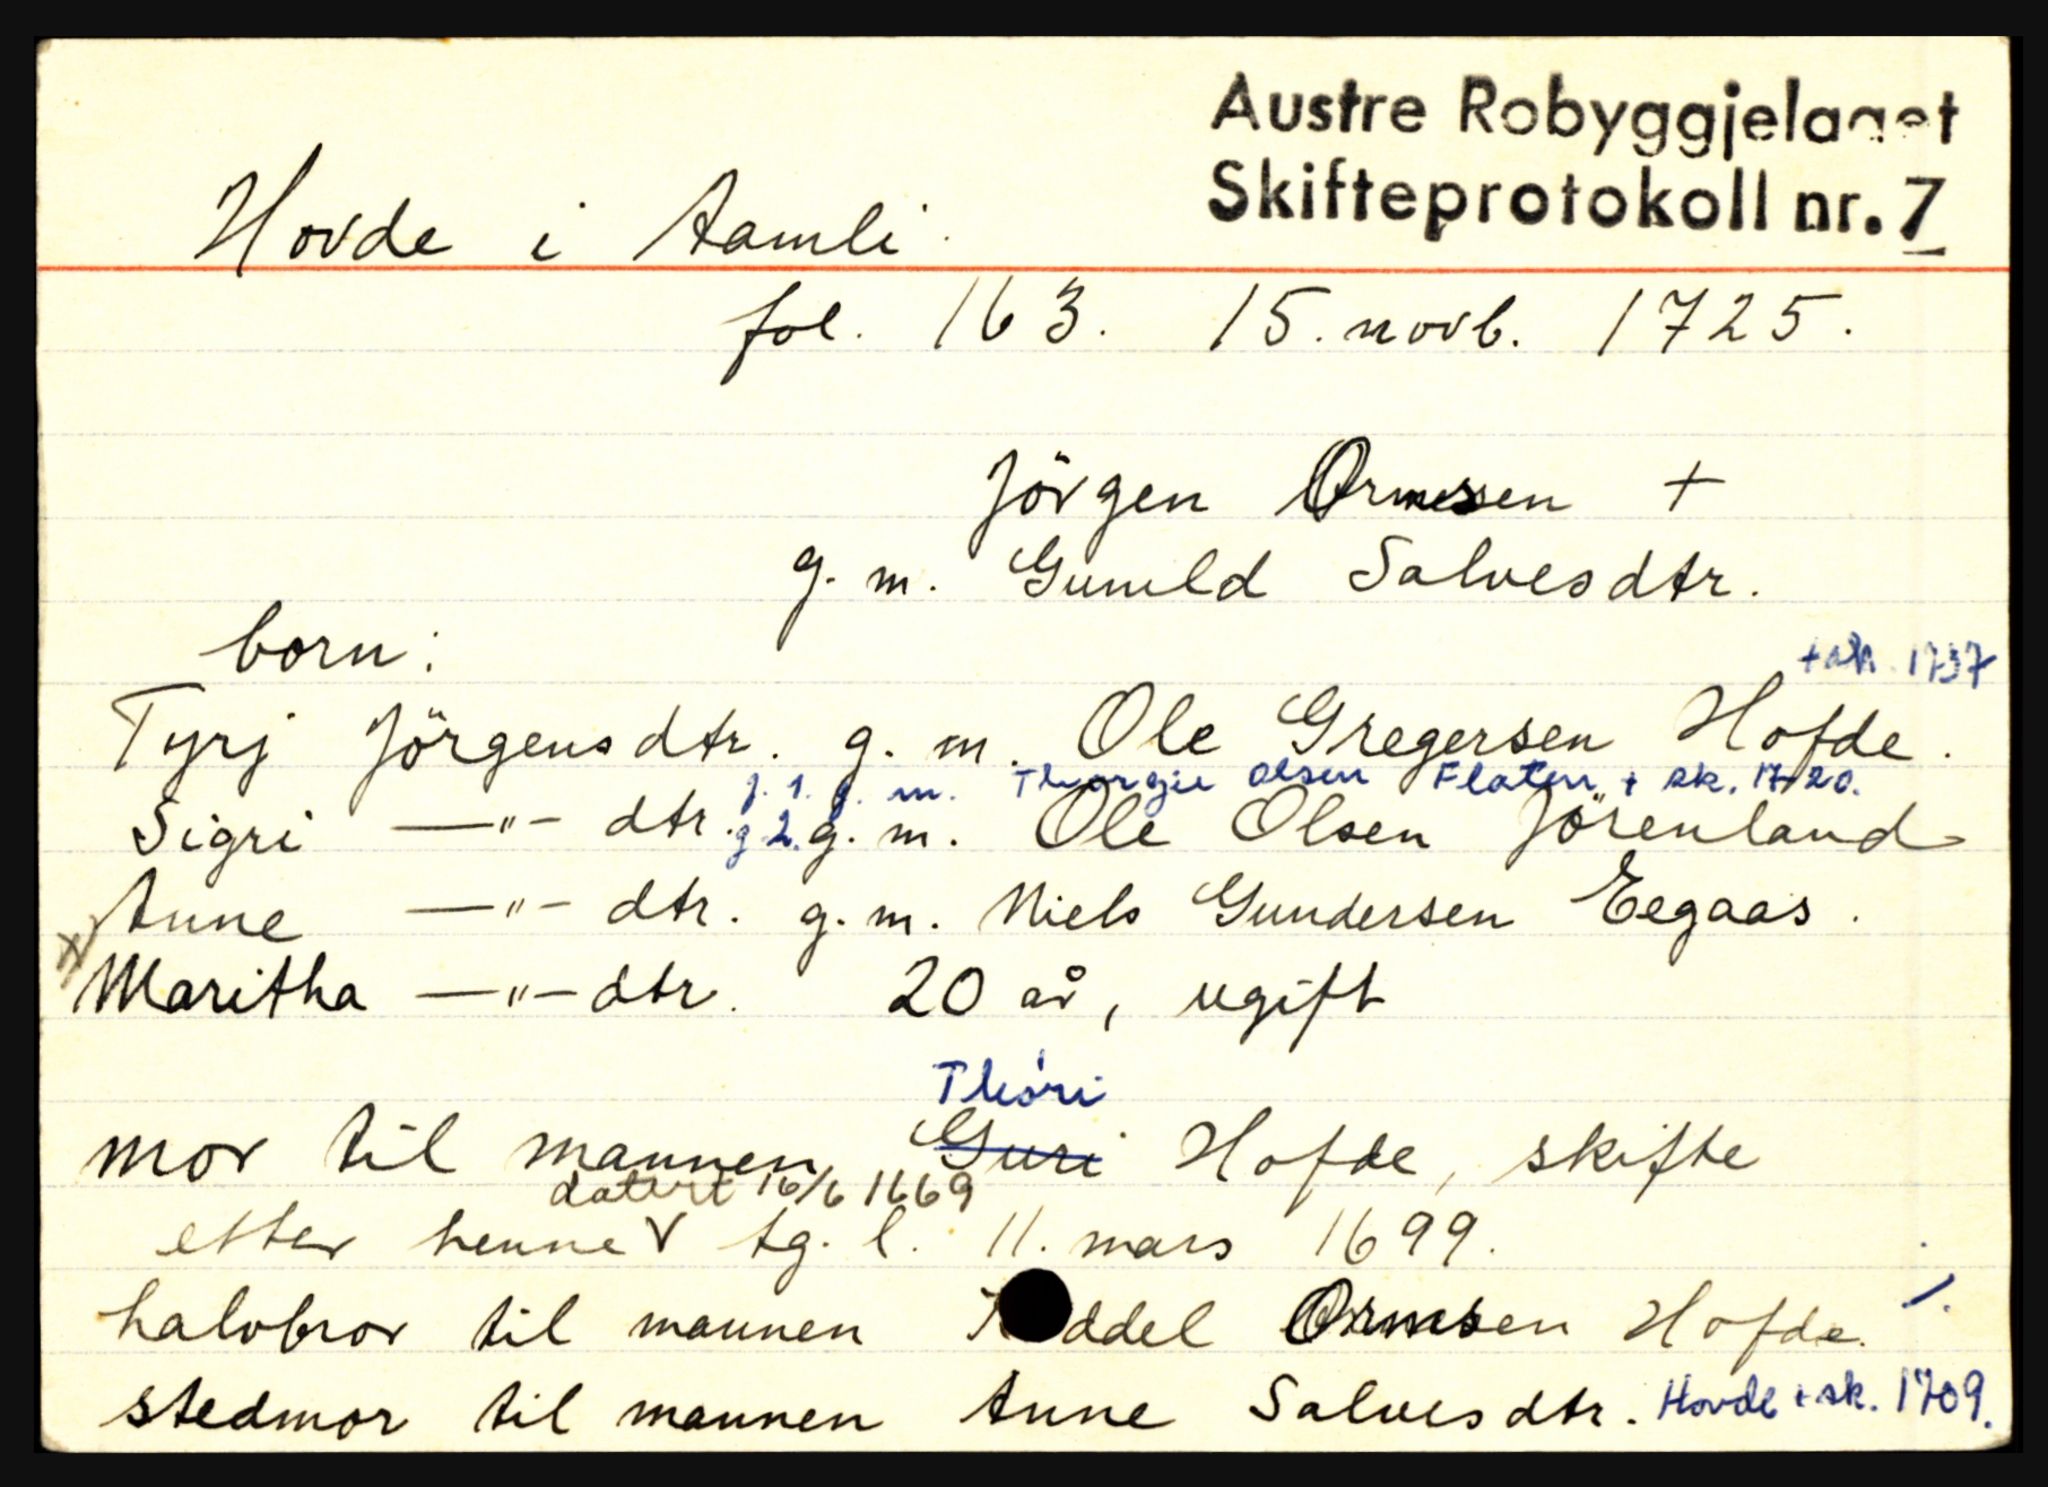 Austre Robyggjelaget
Skifteprotokoll nr. 7
Hovde i Aamli.
fol. 163. 15. novb. 1725.
Jörgen Ormsen +
g. m. Gunild Salvesdtr.
born:
+ sk. 1737
Tyrj Jörgensdtr. g. m. Ole Gregersen Hofde.
g. 1. g. m. Thorgie Olsen Flaten + sk. 1720.
Sigri —"— dtr. g 2. g. m. Ole Olsen Jörenland
Anne —"— dtr. g. m. Niels Gundersen Eegaas.
x Maritha —"— dtr. 20 år, ugift
Thóri
mor til mannen Guri Hofde, skifte
datert 16/6 1669
etter henne V tg. l. 11. mars 1699.
halvbror til mannen ddel Ormsen Hofde.
stedmor til mannen Anne Salvesdtr. Hovde + sk. 1709.